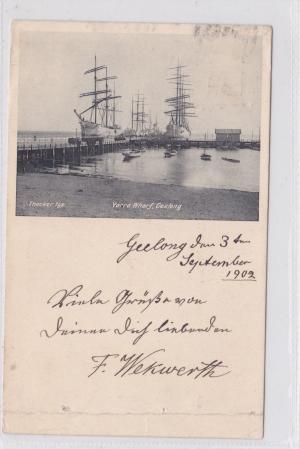 Thacker Typ.
Yarra Wharf, Geelong
Geelong den 3ten
September
1902
Viele Grüße von
Deinen Dich liebenden
F. Wekwerth